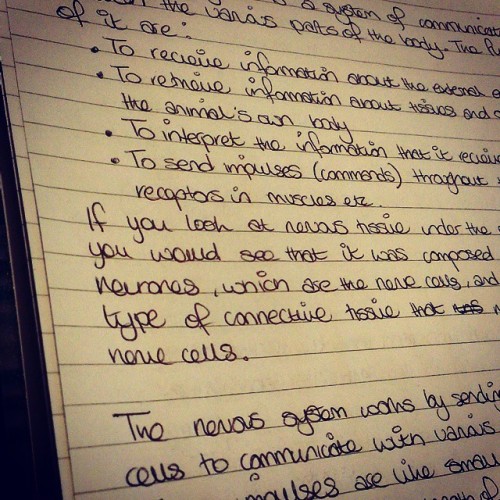 the various parts of the body. The
is a system of communicat
of it are:
• To recieve information about the external e
• To retrieve information about tissues and o
the animal's own body
• To interpret the information that it recieve
• To send impulses (comments) throughout
receptors in muscles etc.
If you look at nervous tissue under the
you would see that it was composed
neurones, which are the nerve cells, and
type of connective tissue that
nerve cells.
The nervous system works by sending
cells to communicate with various
impulses are like small